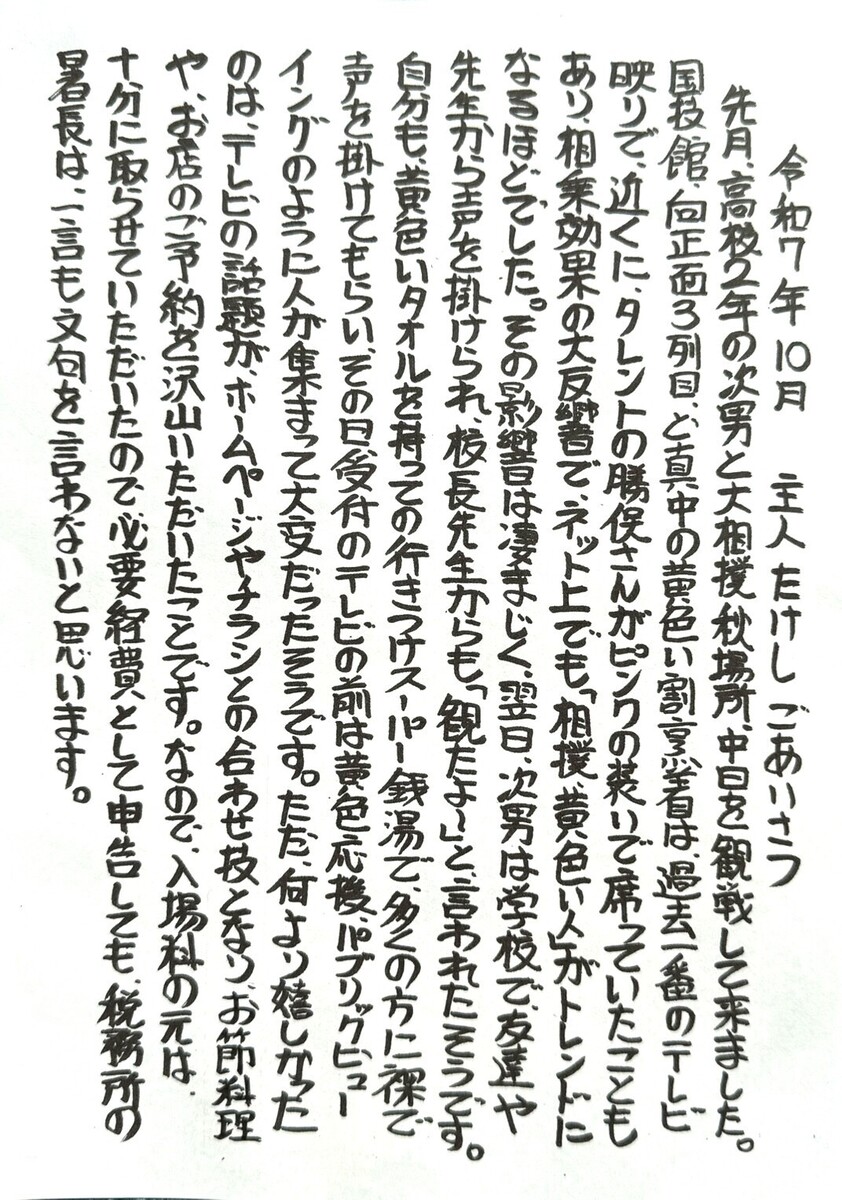 令和7年10月 主人 たけし ごあいさつ
先月、高校2年の次男と大相撲秋場所、中日を観戦して来ました。
国技館、向正面3列目、ど真中の黄色い割烹着は、過去一番のテレビ
映りで、近くに、タレントの勝俣さんがピンクの装いで席っていたことも
あり、相乗効果の大反響で、ネット上でも「相撲、黄色い人」がトレンドに
なるほどでした。その影響は凄まじく、翌日、次男は学校で、友達や
先生から声を掛けられ、校長先生からも「観たよ〜」と、言われたそうです。
自分も、黄色いタオルを持っての行きつけスーパー銭湯で、多くの方に裸で
声を掛けてもらい、その日、受付のテレビの前は黄色応援、パブリックビュー
イングのように人が集まって大変だったそうです。ただ、何より嬉しかった
のは、テレビの話題が、ホームページやチラシとの合わせ技となり、お節料理
や、お店のご予約を沢山いただいたことです。なので、入場料の元は、
十分に取らせていただいたので、必要経費として申告しても、税務所の
署長は、一言も文句を言わないと思います。